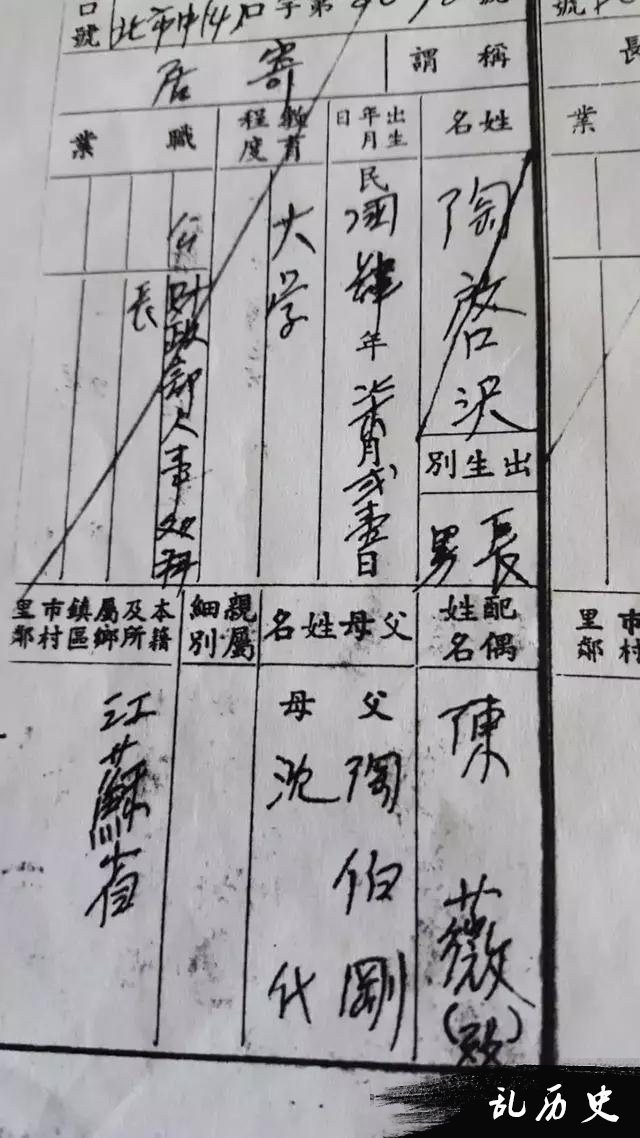 口號 北市中
寄居
稱謂
姓名
陶啓泯
出生年月日
民國肆年柒月弍壹日
教育程度
大学
職業
公
財政部人事処科長
出生別
長男
配偶姓名
陳薇(歿)
父母姓名
父 陶伯剛
母 沈代
親屬細別
本籍及所屬鄉鎮區市村里鄰
江蘇省
號
長
業
市村里鄰
乱历史